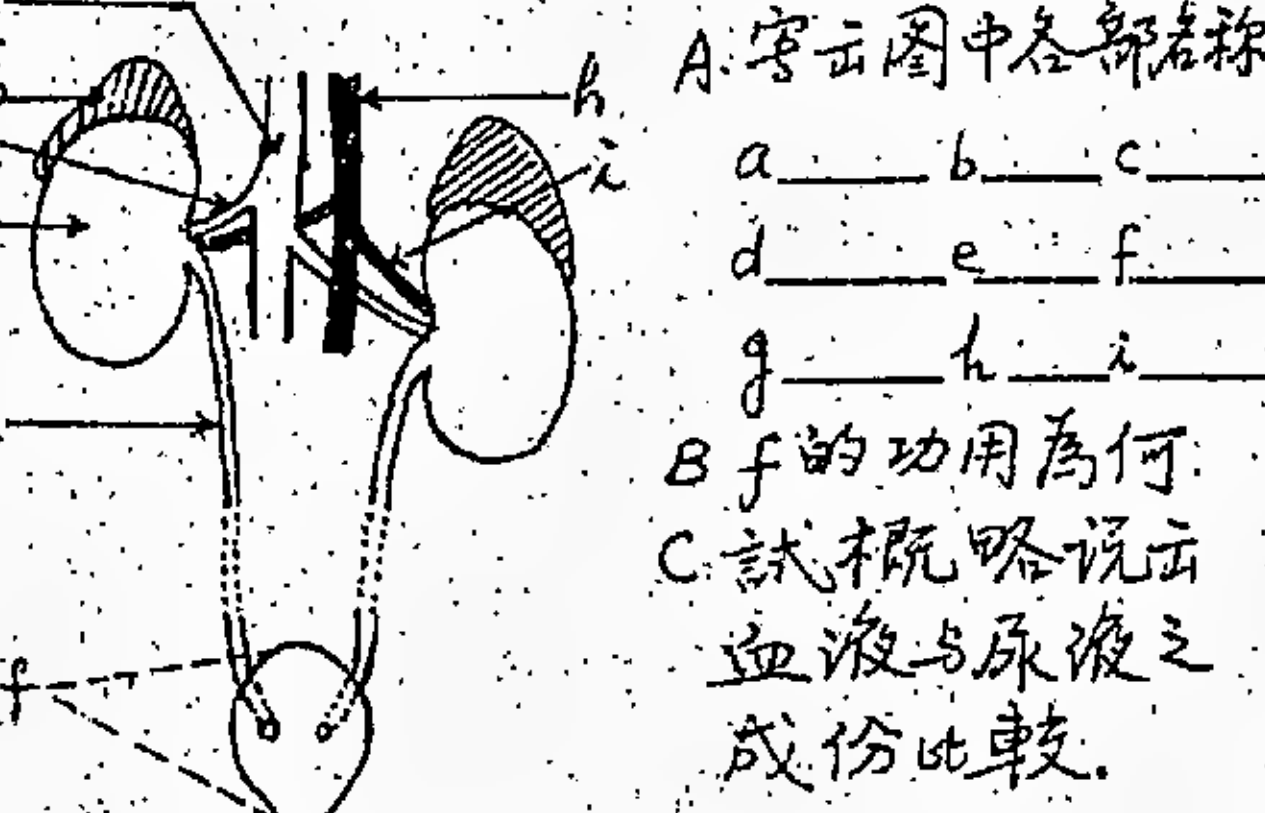 h
i
f
A. 写出图中各部名称
a______ b______ c______
d______ e______ f______
g______ h______ i______
B f的功用為何:
C: 試概略说出
血液与尿液之
成份比較.